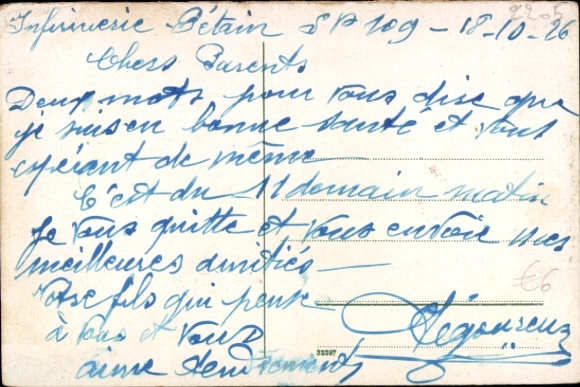 Infirmerie Pétain SP 109 - 18-10-26
Chers Parents
Deux mots pour vous dire que
je suis en bonne santé et vous
espérant de même
C'est du 11 demain matin
Je vous quitte et vous envoie mes
meilleures amitiés
Votre fils qui pense
à vous et vous
aime tendrement
€6
33397